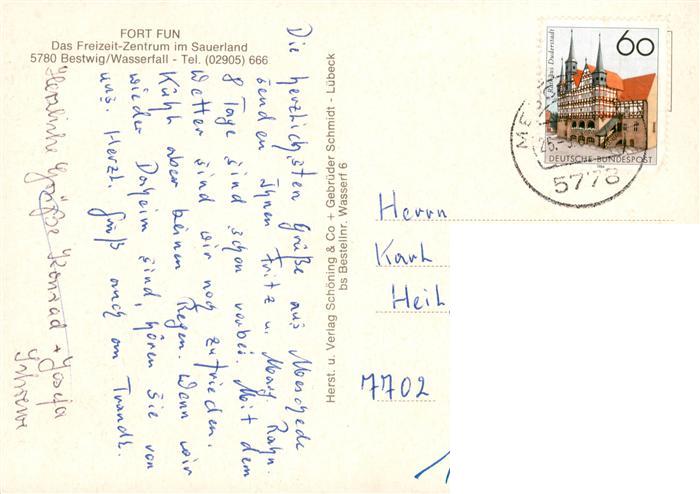 FORT FUN
Das Freizeit-Zentrum im Sauerland
5780 Bestwig/Wasserfall - Tel. (02905) 666
Die herzlichsten Grüße aus Meschede
senden Ihnen Fritz u. Marg. Rahn.
8 Tage sind schon vorbei. Mit dem
Wetter sind wir noch zufrieden.
Kühl aber keinen Regen. Wenn wir
wieder Daheim sind, hören Sie von
uns. Herzl. Gruß auch an Traudl.
Herzliche Grüße Konrad + Josefa
Herst. u. Verlag Schöning & Co + Gebrüder Schmidt - Lübeck
bs Bestellnr. Wasserf 6
60
Rathaus Duderstadt
DEUTSCHE BUNDESPOST
5778
Herrn
Karl
7702